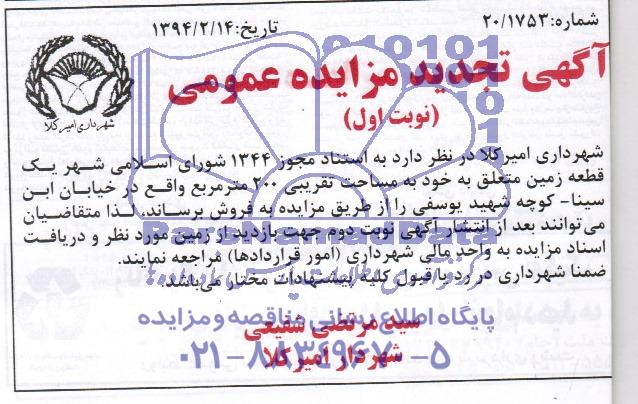 شماره:۲۰/۱۷۵۳
تاریخ:۱۳۹۴/۲/۱۴
شهرداری امیرکلا
آگهی تجدید مزایده عمومی
(نوبت اول)
شهرداری امیرکلا در نظر دارد به استناد مجوز ۱۳۴۴ شورای اسلامی شهر یک
قطعه زمین متعلق به خود به مساحت تقریبی ۲۰۰ مترمربع واقع در خیابان ابن
سینا- کوچه شهید یوسفی را از طریق مزایده به فروش برساند، لذا متقاضیان
می‌توانند بعد از انتشار آگهی نوبت دوم جهت بازدید از زمین مورد نظر و دریافت
اسناد مزایده به واحد مالی شهرداری (امور قراردادها) مراجعه نمایند.
ضمنا شهرداری در رد یا قبول کلیه پیشنهادات مختار می‌باشد.
پایگاه اطلاع رسانی مناقصه و مزایده
سید مرتضی شفیعی
شهردار امیرکلا
۰۲۱-۸۸۳۴۹۶۷۰-۵